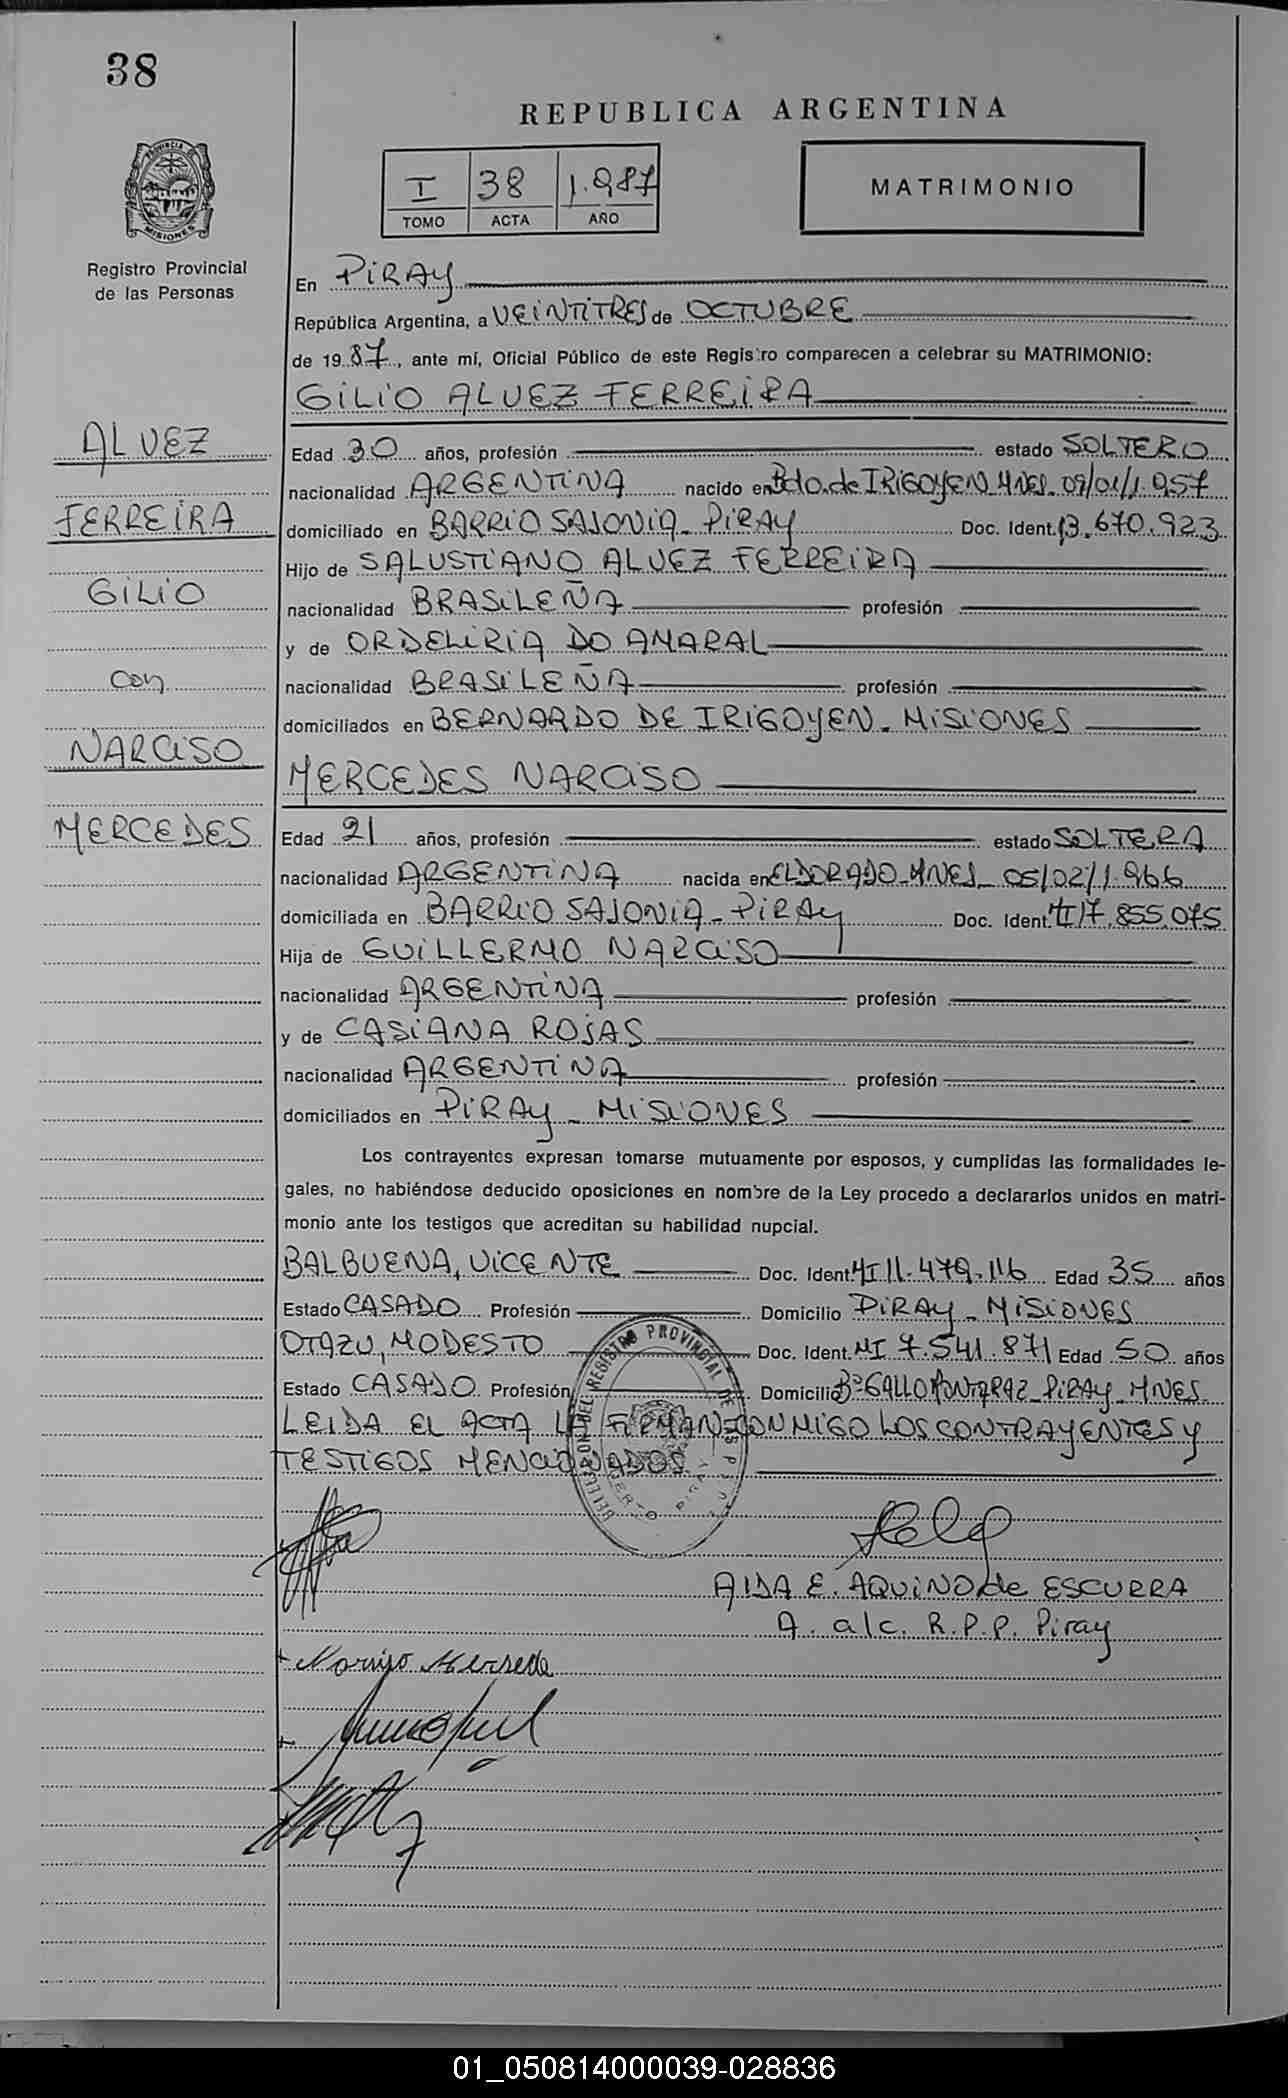 38
REPUBLICA ARGENTINA
I 38 1.987
TOMO ACTA AÑO
MATRIMONIO
PROVINCIA DE MISIONES
Registro Provincial
de las Personas
En PIRAY
República Argentina, a VEINTITRES de OCTUBRE
de 19 87, ante mí, Oficial Público de este Registro comparecen a celebrar su MATRIMONIO:
GILIO ALVEZ FERREIRA
ALVEZ
FERREIRA
GILIO
con
NARCISO
MERCEDES
Edad 30 años, profesión estado SOLTERO
nacionalidad ARGENTINA nacido en Bdo. de IRIGOYEN MNES. 09/01/1.957
domiciliado en BARRIO SAJONIA - PIRAY Doc. Ident. 13.670.923
Hijo de SALUSTIANO ALVEZ FERREIRA
nacionalidad BRASILEÑA profesión
y de ORDELIRIA DO AMARAL
nacionalidad BRASILEÑA profesión
domiciliados en BERNARDO DE IRIGOYEN - MISIONES
MERCEDES NARCISO
Edad 21 años, profesión estado SOLTERA
nacionalidad ARGENTINA nacida en ELDORADO - MNES - 05/02/1.966
domiciliada en BARRIO SAJONIA - PIRAY Doc. Ident. 17.855.075
Hija de GUILLERMO NARCISO
nacionalidad ARGENTINA profesión
y de CASIANA ROJAS
nacionalidad ARGENTINA profesión
domiciliados en PIRAY - MISIONES
Los contrayentes expresan tomarse mutuamente por esposos, y cumplidas las formalidades le-
gales, no habiéndose deducido oposiciones en nombre de la Ley procedo a declararlos unidos en matri-
monio ante los testigos que acreditan su habilidad nupcial.
BALBUENA, VICENTE Doc. Ident. MI 11.479.116 Edad 35 años
Estado CASADO Profesión Domicilio PIRAY - MISIONES
OTAZU, MODESTO Doc. Ident. MI 7.541.871 Edad 50 años
Estado CASADO Profesión Domicilio Bº GALLO PONTARAZ - PIRAY - MNES
LEIDA EL ACTA LA FIRMAN CONMIGO LOS CONTRAYENTES Y
TESTIGOS MENCIONADOS
AIDA E. AQUINO de ESCURRA
A. a/c. R.P.P. Piray
01_050814000039-028836